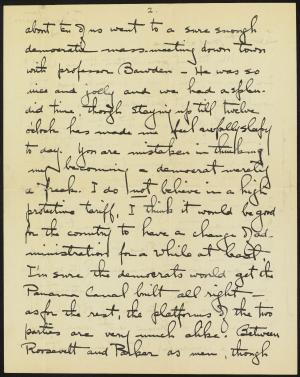 2
about ten of us went to a sure enough
democratic mass-meeting down town
with professor Bawden – He was so
nice and jolly and we had a splen-
did time though staying up till twelve
oclock has made me feel awfully sleepy
to day. You are mistaken in thinking
my becoming a democrat merely
a freak. I do not believe in a high
protective tariff. I think it would be good
for the country to have a change of ad-
ministration for a while at least.
I'm sure the democrats would get the
Panama Canal built all right –
as for the rest, the platforms of the two
parties are very much alike. Between
Roosevelt and Parker as men, though